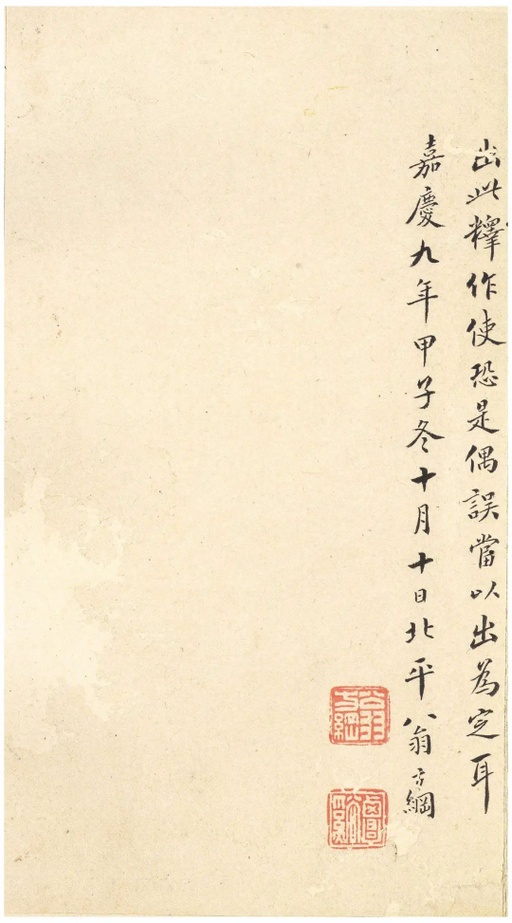 出此釋作使恐是偶誤當以出為定耳
嘉慶九年甲子冬十月十日北平翁方綱
翁方綱
覃谿